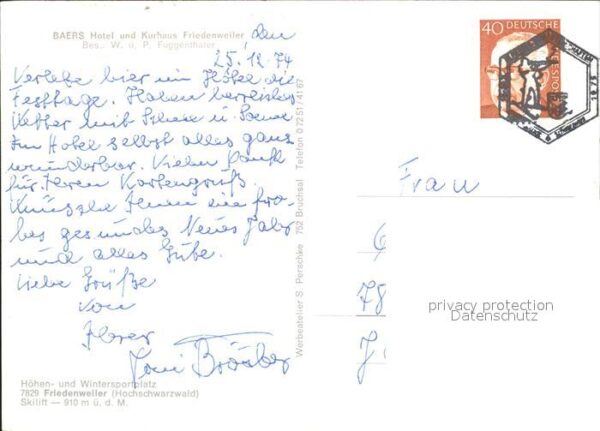 BAERS Hotel und Kurhaus Friedenweiler
Bes. W. u. P. Fuggenthaler
den
25.12.74
Verlebe hier im Hotel die
Festtage. Haben herrliches
Wetter mit Schnee u. Sonne
Im Hotel selbst alles ganz
wunderbar. Vielen Dank
für Ihren Kartengruß.
Wünsche Ihnen ein fro-
hes gesundes Neues Jahr
und alles Gute.
Liebe Grüße
von
Ihrer
Höhen- und Wintersportplatz
7829 Friedenweiler (Hochschwarzwald)
Skilift — 910 m ü. d. M.
Werbeatelier S. Perschke 752 Bruchsal Telefon 0 72 51 / 41 67
40 DEUTSCHE
BUNDESPOST
Frau
78
privacy protection
Datenschutz